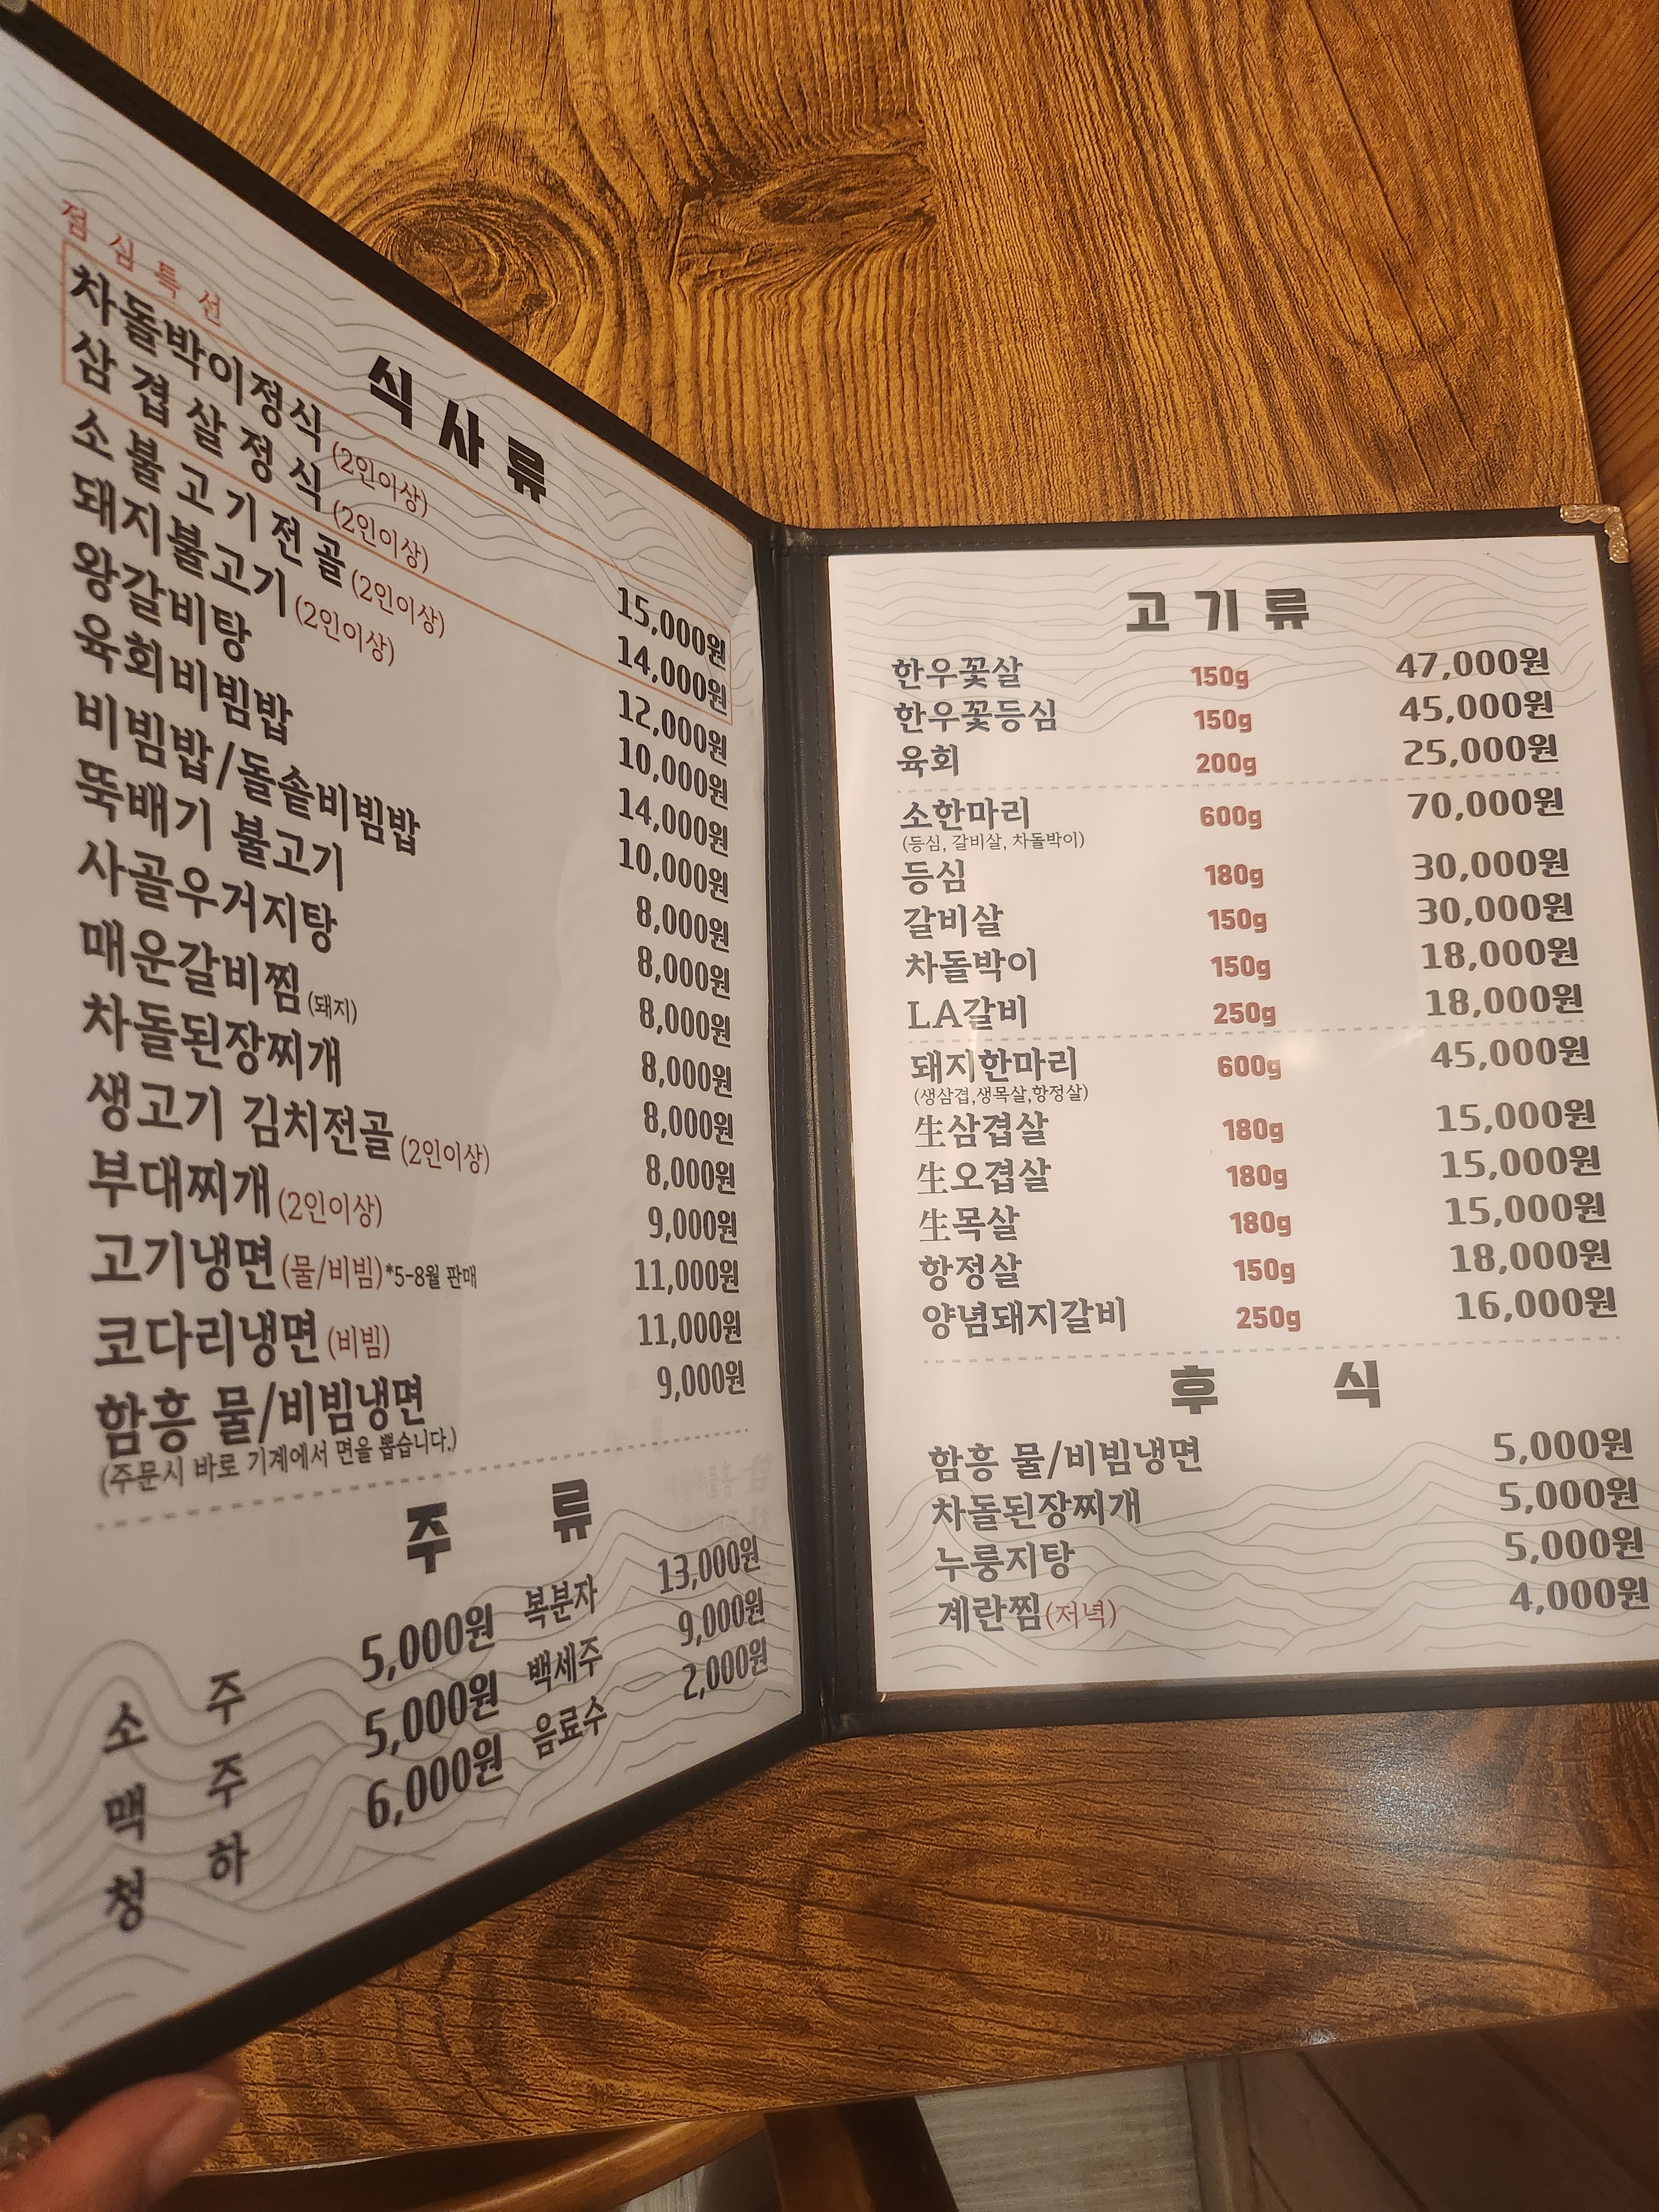 식사류
점심특선
차돌박이정식 (2인이상) 15,000원
삼겹살정식 (2인이상) 14,000원
소불고기전골 (2인이상) 12,000원
돼지불고기 (2인이상) 10,000원
왕갈비탕 14,000원
육회비빔밥 10,000원
비빔밥/돌솥비빔밥 8,000원
뚝배기 불고기 8,000원
사골우거지탕 8,000원
매운갈비찜 (돼지) 8,000원
차돌된장찌개 8,000원
생고기 김치전골 (2인이상) 8,000원
부대찌개 (2인이상) 9,000원
고기냉면 (물/비빔) *5-8월 판매 11,000원
코다리냉면 (비빔) 11,000원
함흥 물/비빔냉면 9,000원
(주문시 바로 기계에서 면을 뽑습니다.)
주류
소주 5,000원 복분자 13,000원
맥주 5,000원 백세주 9,000원
청하 6,000원 음료수 2,000원
고기류
한우꽃살 150g 47,000원
한우꽃등심 150g 45,000원
육회 200g 25,000원
소한마리 600g 70,000원
(등심, 갈비살, 차돌박이)
등심 180g 30,000원
갈비살 150g 30,000원
차돌박이 150g 18,000원
LA갈비 250g 18,000원
돼지한마리 600g 45,000원
(생삼겹,생목살,항정살)
生삼겹살 180g 15,000원
生오겹살 180g 15,000원
生목살 180g 15,000원
항정살 150g 18,000원
양념돼지갈비 250g 16,000원
후식
함흥 물/비빔냉면 5,000원
차돌된장찌개 5,000원
누룽지탕 5,000원
계란찜(저녁) 4,000원